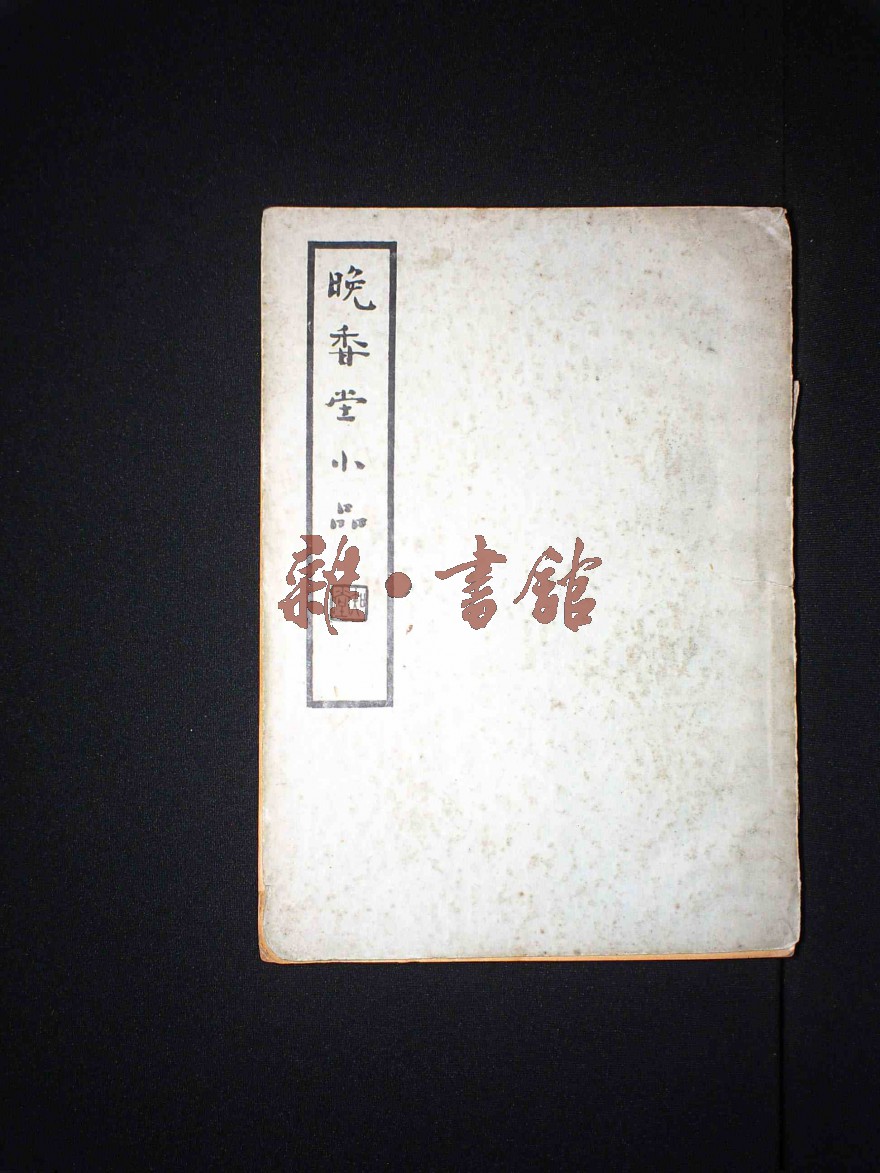 晚香堂小品
雜·書館